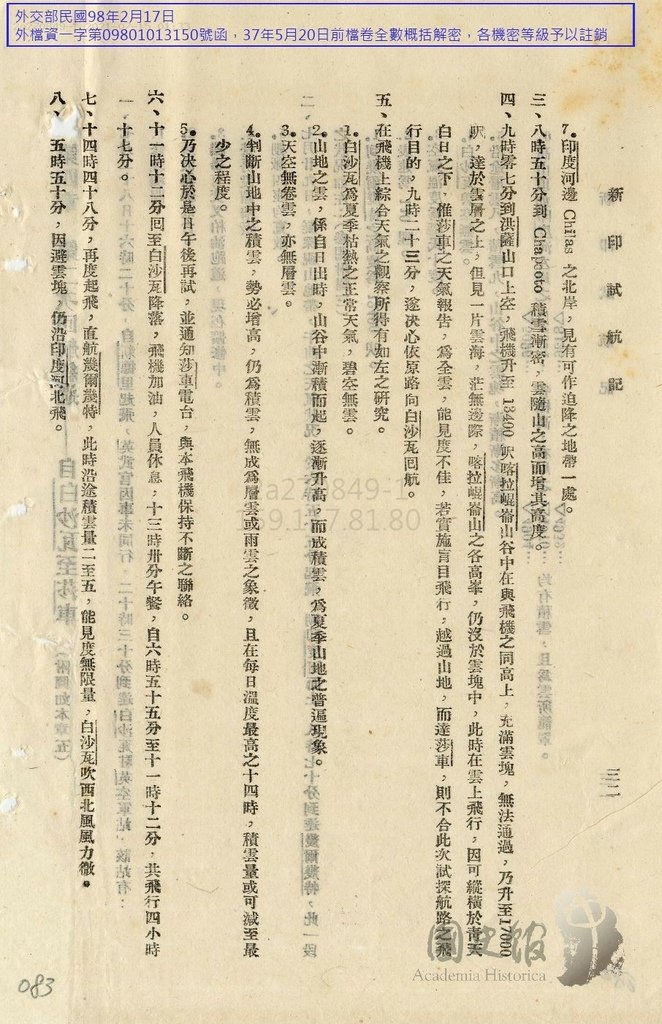 外交部民國98年2月17日
外檔資一字第09801013150號函，37年5月20日前檔卷全數概括解密，各機密等級予以註銷
新印試航記
三二
7.印度河邊 Chilas 之北岸，見有可作迫降之地帶一處。
三、八時五十分到 Chapcoto 積雪漸密，雲隨山之高而增其高度。
四、九時零七分到洪薩山口上空，飛機升至 13400 呎喀拉崐崙山谷中在與飛機之同高上，充滿雲塊，無法通過，乃升至17000
呎，達於雲層之上，但見一片雲海，茫無邊際，喀拉崐崙山之各高峯，仍沒於雲塊中，此時在雲上飛行，因可縱橫於青天
白日之下，惟莎車之天氣報告，為全雲，能見度不佳，若實施盲目飛行，越過山地，而達莎車，則不合此次試探航路之飛
行目的，九時二十三分，遂決心依原路向白沙瓦回航。
五、在飛機上綜合天氣之觀察所得有如左之研究。
1.白沙瓦為夏季枯熱之正常天氣，碧空無雲。
2.山地之雲，係自日出時，山谷中漸積而起，逐漸升高，而成積雲，為夏季山地之普遍現象。
3.天空無卷雲，亦無層雲。
4.判斷山地中之積雲，勢必增高，仍為積雲，無成為層雲或雨雲之象徵，且在每日溫度最高之十四時，積雲量或可減至最
少之程度。
5.乃決心於是日午後再試，並通知莎車電台，與本飛機保持不斷之聯絡。
六、十一時十二分回至白沙瓦降落，飛機加油，人員休息，十三時卅分午餐，自六時五十五分至十一時十二分，共飛行四小時
十七分。
七、十四時四十八分，再度起飛，直航幾爾幾特，此時沿途積雲量二至五，能見度無限量，白沙瓦吹西北風風力微。
八、五時五十分，因避雲塊，仍沿印度河北飛。
083
國史館
Academia Historica